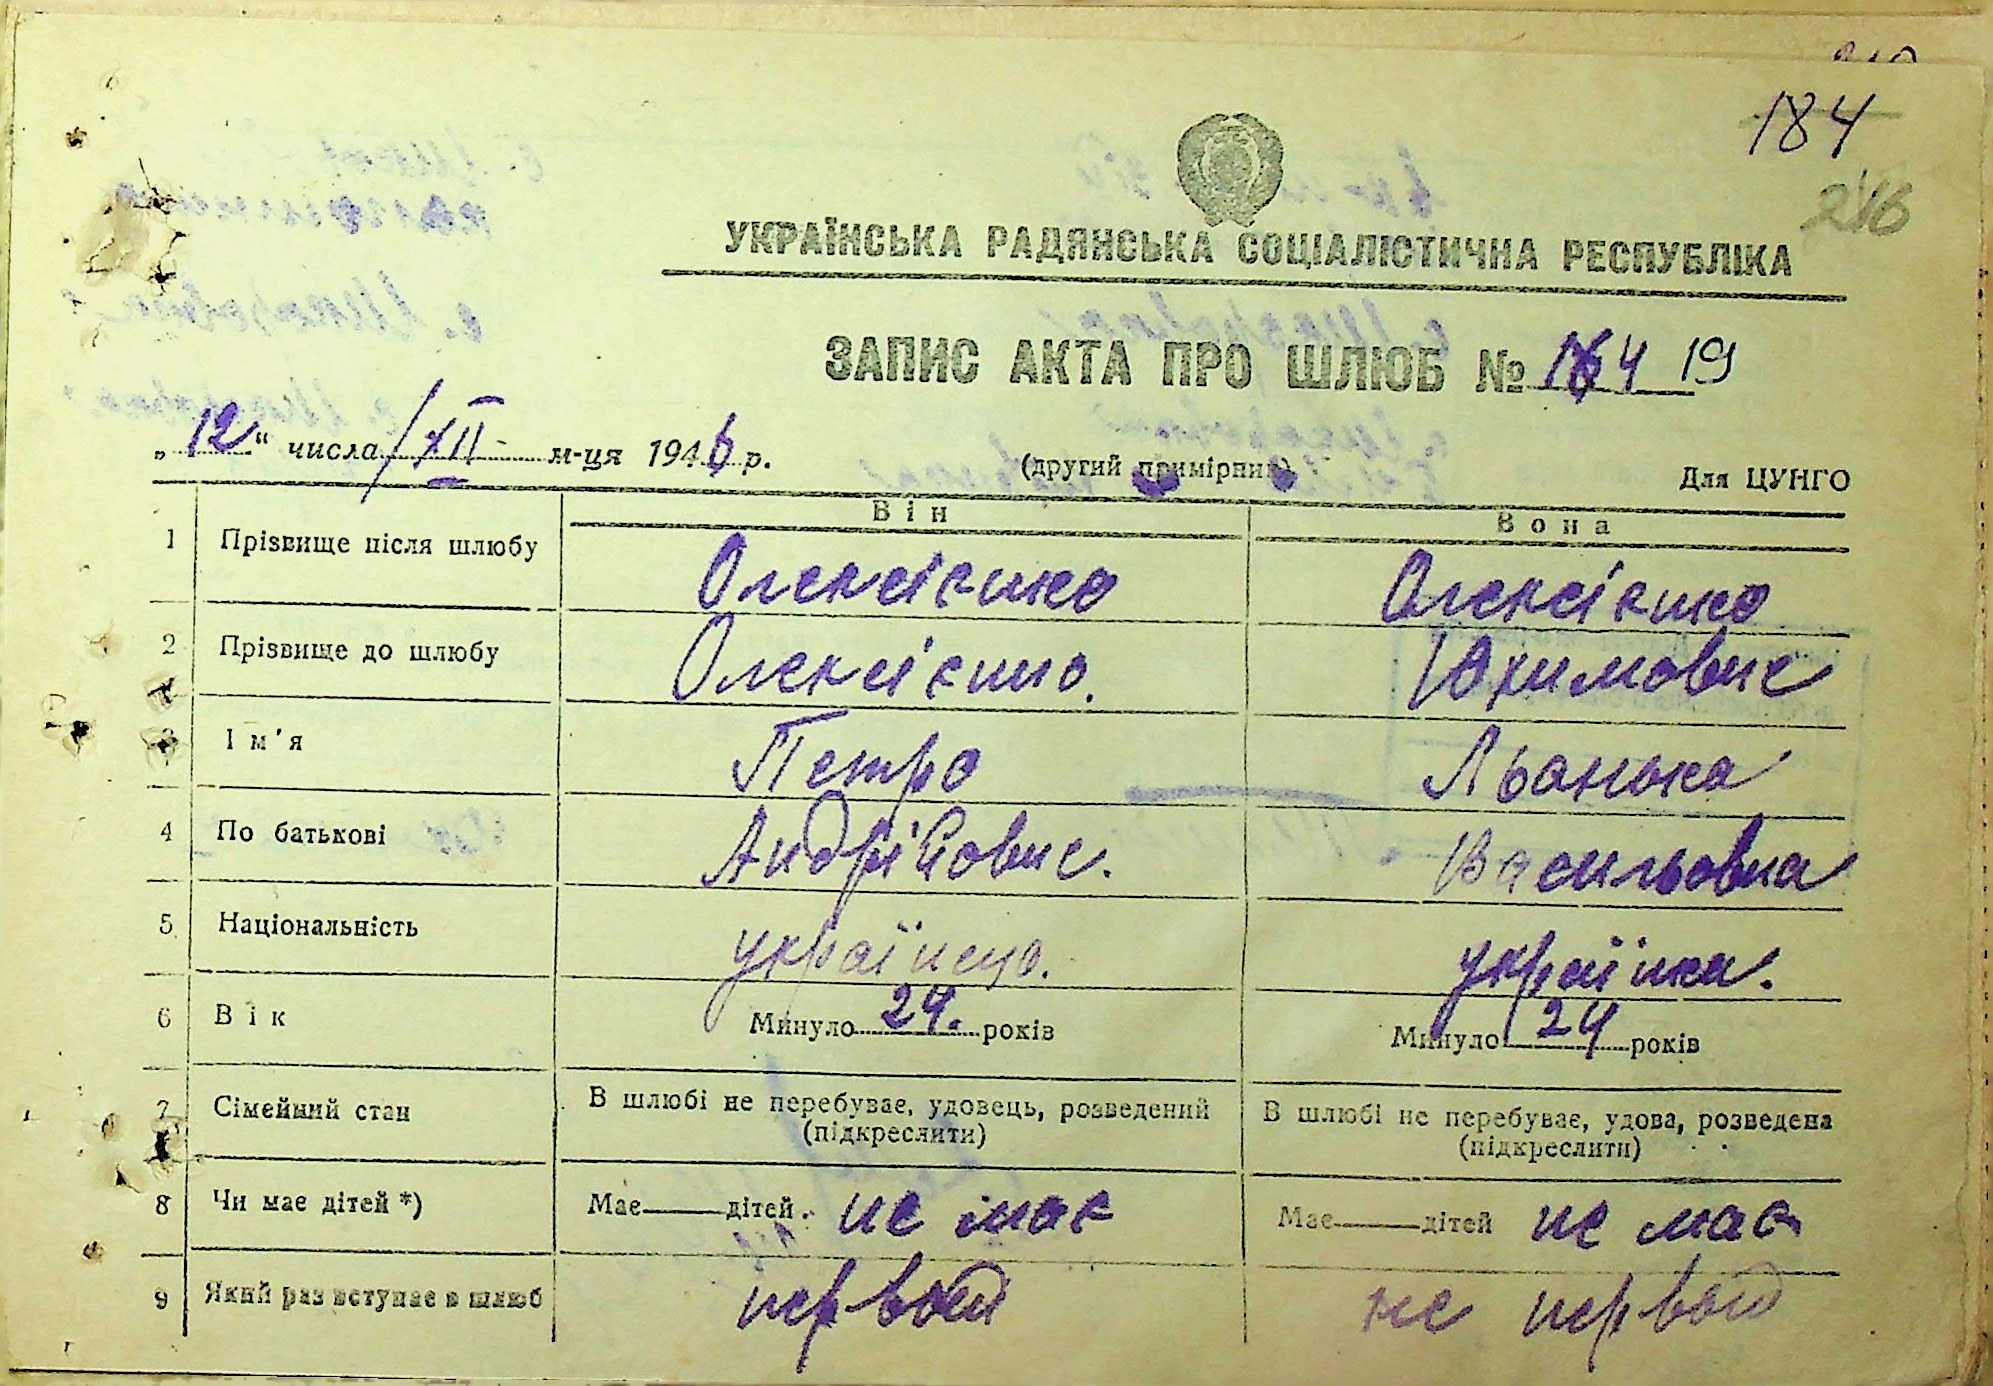 184
216
УКРАЇНСЬКА РАДЯНСЬКА СОЦІАЛІСТИЧНА РЕСПУБЛІКА
ЗАПИС АКТА ПРО ШЛЮБ № 164 19
„12" числа XII м-ця 1946 р.
(другий примірник)
Для ЦУНГО
Він Вона
1 Прізвище після шлюбу Олексієнко Олексієнко
2 Прізвище до шлюбу Олексієнко. Юхимович
3 Ім'я Петро
4 По батькові Андрійович. Васильовна
5 Національність українець. українка.
6 Вік Минуло 24. років Минуло 24 років
7 Сімейний стан В шлюбі не перебуває, удовець, розведений (підкреслити) В шлюбі не перебуває, удова, розведена (підкреслити)
8 Чи має дітей *) Має — дітей. не має Має — дітей не має
9 Який раз вступає в шлюб первый не первый